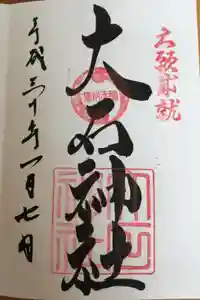 大願成就
大石神社
平成三十年一月七日